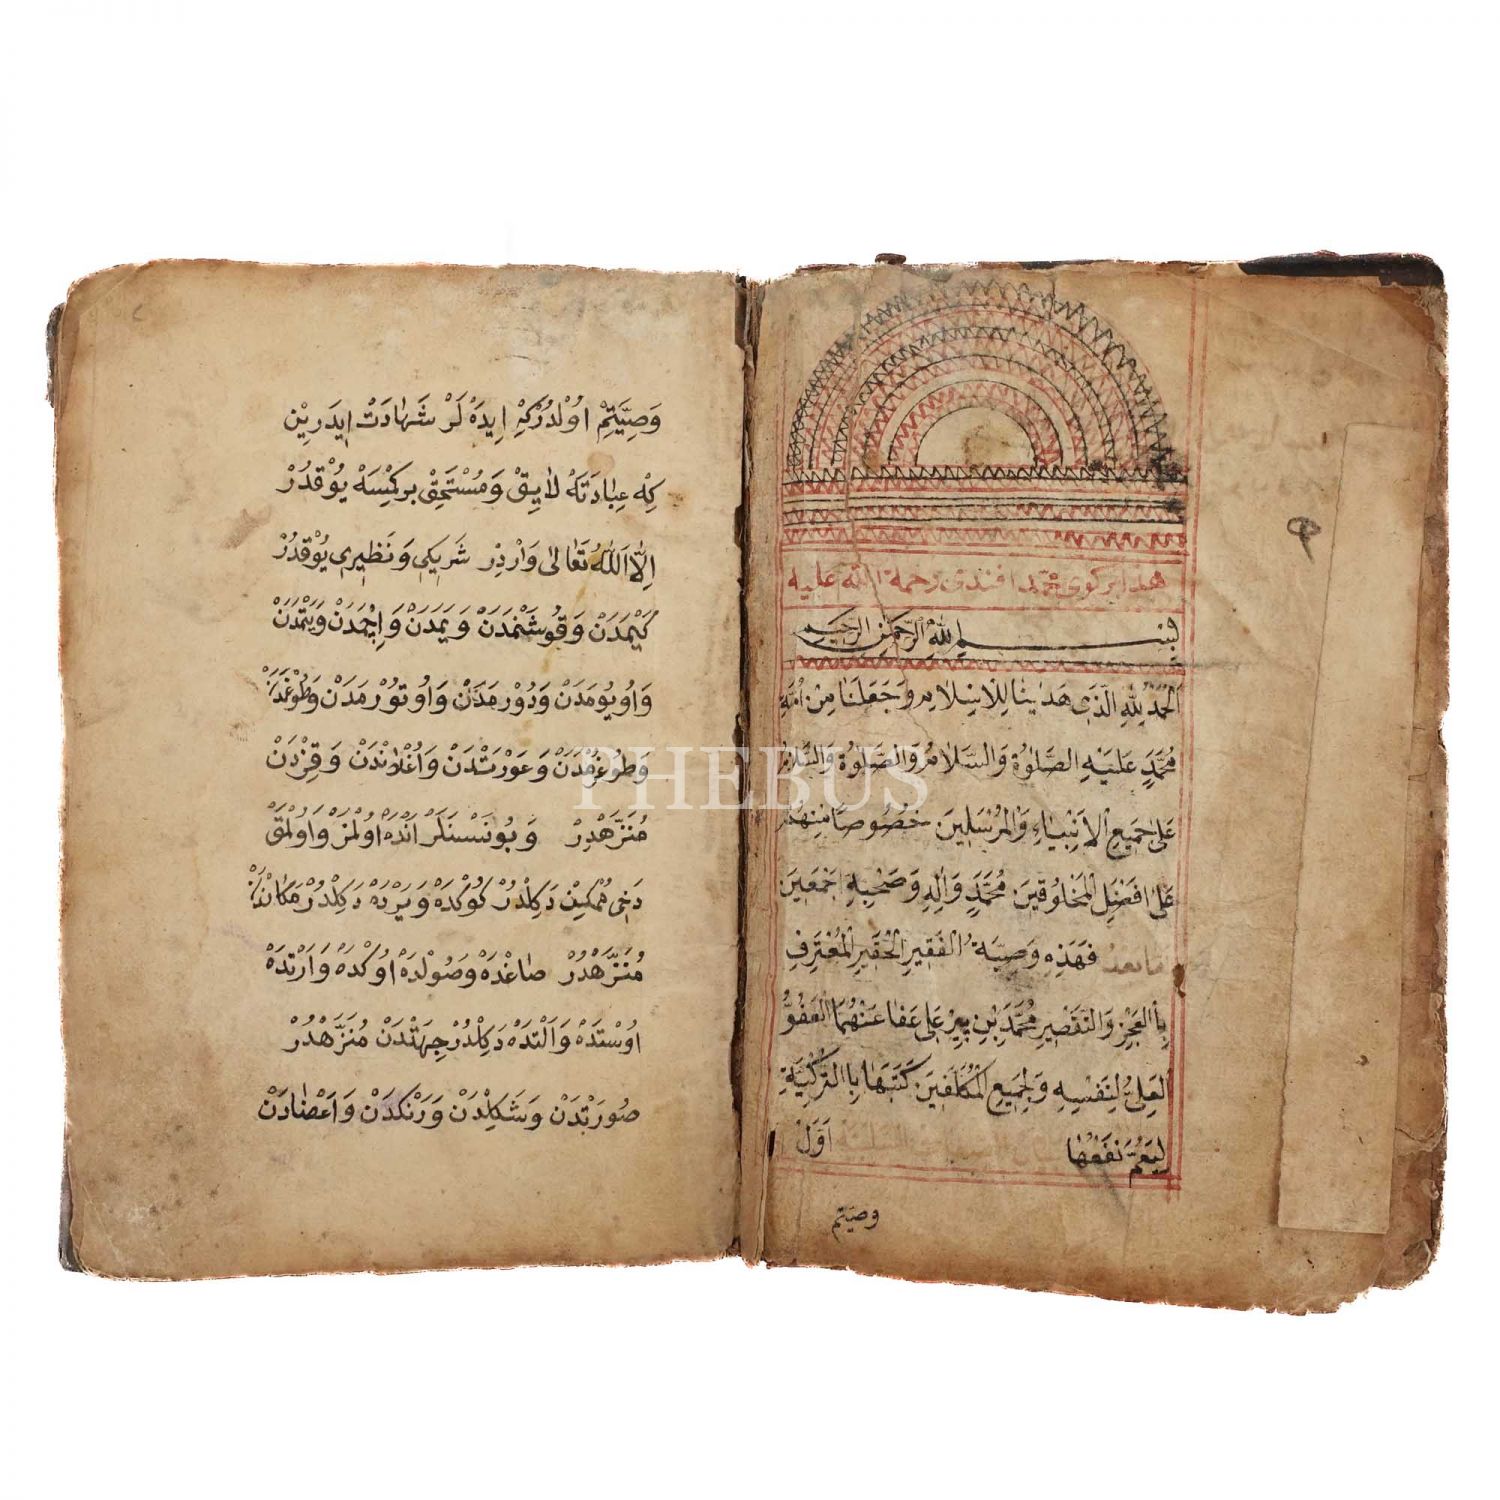 هذا بركوى محمد افندى رحمة الله عليه
بسم الله الرحمن الرحيم
اَلْحَمْدُ لِلّٰهِ الَّذِى هَدٰينَا لِلْاِسْلَامِ وَجَعَلَنَا مِنْ اُمَّةِ
مُحَمَّدٍ عَلَيْهِ الصَّلٰوةُ وَالسَّلَامُ وَالصَّلٰوةُ وَالسَّلَامُ
عَلٰى جَمِيعِ الْاَنْبِيَاءِ وَالْمُرْسَلِينَ خُصُوصًا مِنْهُمْ
عَلٰى اَفْضَلِ الْمَخْلُوقِينَ مُحَمَّدٍ وَاٰلِهِ وَصَحْبِهِ اَجْمَعِينَ
اما بعد فَهَذِهِ وَصِيَّةُ الْفَقِيرِ الْحَقِيرِ الْمُعْتَرِفِ
بِاالْعَجْزِ وَالتَّقْصِيرِ مُحَمَّدِ بْنِ پِيرْ عَلِى عَفَا عَنْهُمَا الْعَفُوُّ
الْعَلِىُّ لِنَفْسِهِ وَلِجَمِيعِ الْمُكَلَّفِينَ كَتَبَهَا بِاالتُّرْكِيَّةِ
لِيَعُمَّ نَفْعُهَا اَوَّلْ
وصيتم
وَصِيَّتِمْ اُوْلْدُرْكِهْ اِيدَهْ لَرْ شَهَادَتْ اِيدَرِيْن
كِهْ عِبَادَتَهْ لَايِقْ وَمُسْتَحِقْ بركِيْسَهْ يُوْقدُرْ
اِلَّا اللّٰهُ تَعَالٰى وَارْدِرْ شَرِيكِى وَنَظِيرِى يُوْقدُرْ
كَيْمَدَنْ وَقُوشَنْمَدَنْ وَيَمَدَنْ وَاِچْمَدَنْ وَيَتْمَدَنْ
وَاُويُومَدَنْ وَدُوْرمَدَنْ وَاُوتُوْرمَدَنْ وَطُوْغمَدَنْ
وَطُوغُرْمَدَنْ وَعَوْرَتْدَنْ وَاُغْلَانْدَنْ وَقِزْدَنْ
مُنَزَّهْدِرْ وَبُونَسْنَلَرْ اَنْدَهْ اُولْمَزْ وَاُولْمَقْ
دَخِى مُمْكِنْ دَكِلْدُرْ كُوكْدَهْ وَيَرْدَهْ دَكِلْدُرْ مَكَانْدَنْ
مُنَزَّهْدُرْ صَاغْدَهْ وَصُولْدَهْ اُوكْدَهْ وَارْتدَهْ
اُوسْتدَهْ وَاَلْتدَهْ دَكِلْدُرْ جِهَتْدَنْ مُنَزَّهْدُرْ
صُورَتْدَنْ وَشَكِلْدَنْ وَرَنْكدَنْ وَاَعْضَادَنْ
PHEBUS